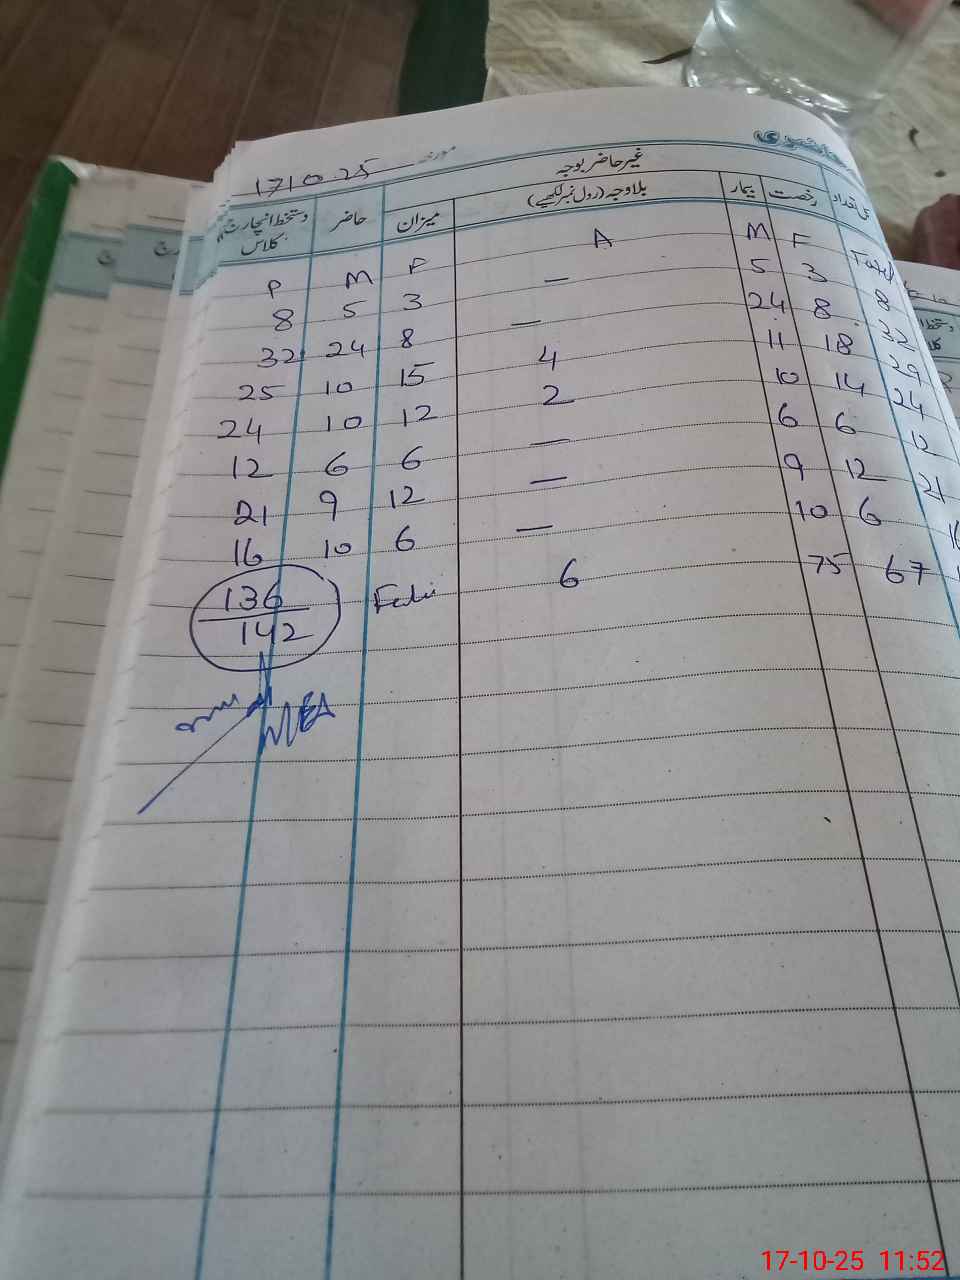 حاضری
17 10.25 مورخہ
غیر حاضر بوجہ
دستخط انچارج کلاس حاضر میزان بلاوجہ (رول نمبر لکھیے) بیمار رخصت کل تعداد
P M F A M F Total
8 5 3 — 5 3 8
32 24 8 — 24 8 32
25 10 15 4 11 18 29
24 10 12 2 10 14 24
12 6 6 — 6 6 12
21 9 12 — 9 12 21
16 10 6 — 10 6
136 6 75 67
142
17-10-25 11:52